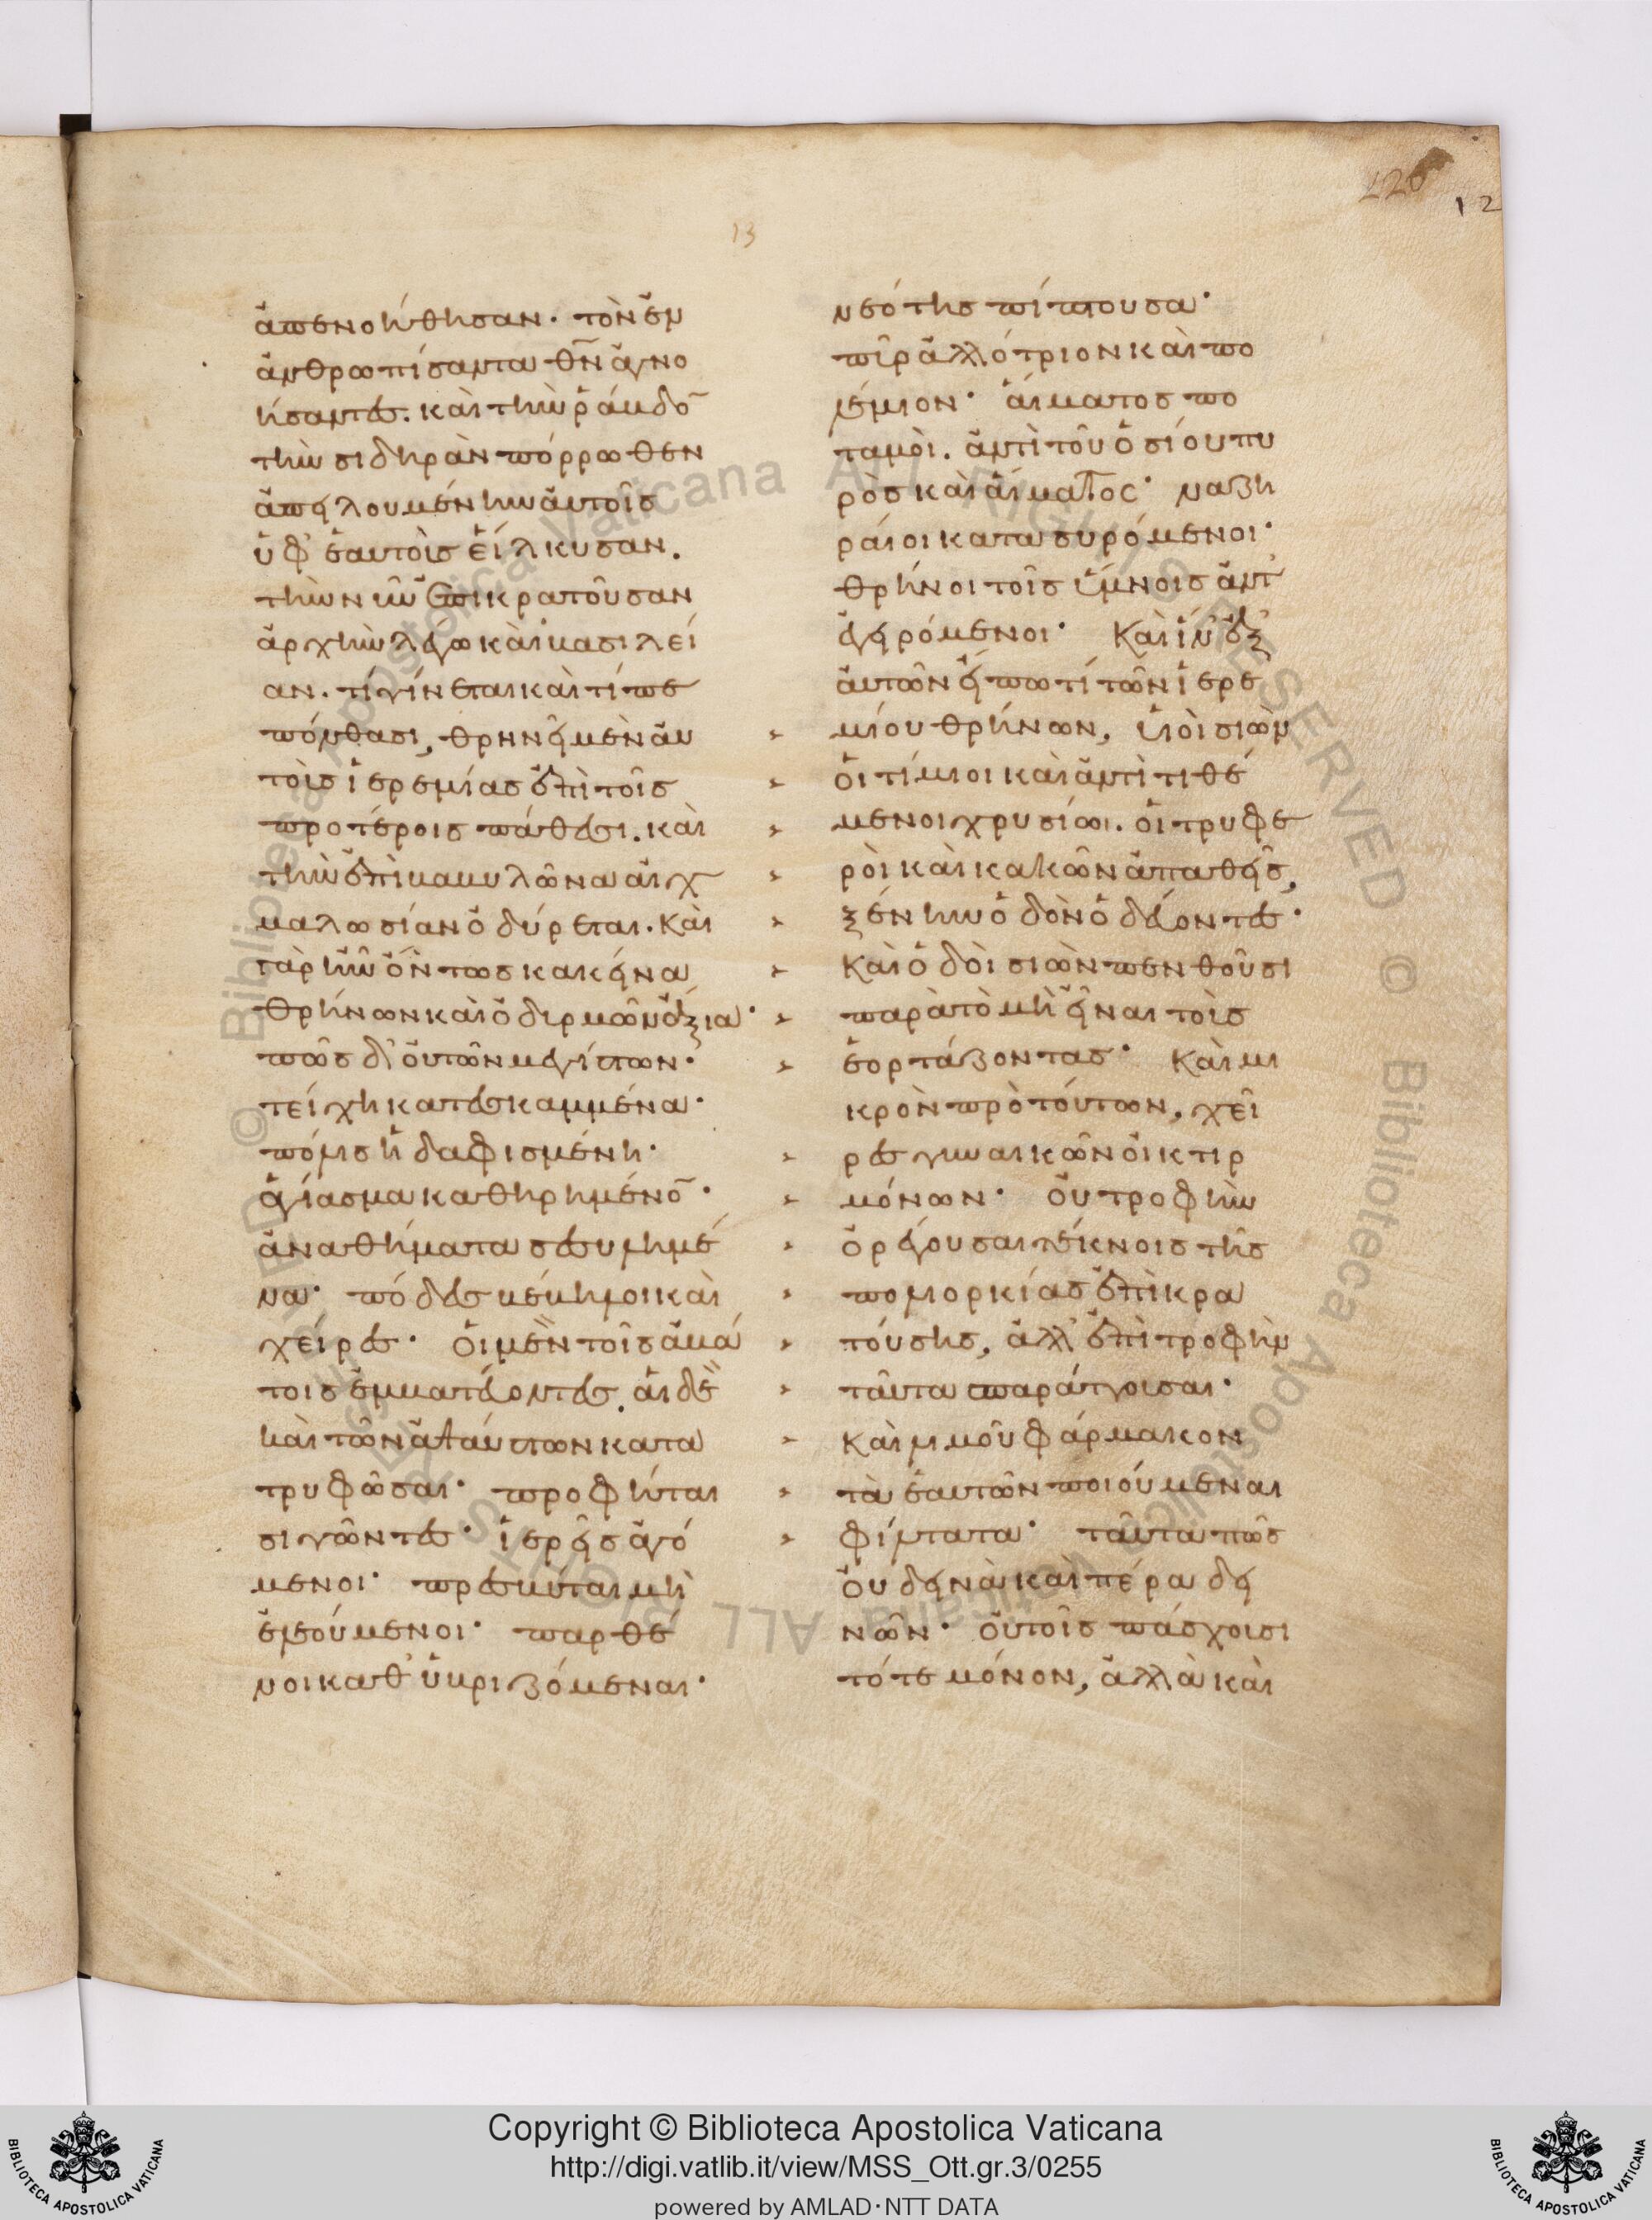 126
12
13
ἀπενοήθησαν· τὸν ἐν
ἀνθρωπίσαντα θν̄ ἀγνο
ήσαντες. καὶ τὴν ῥάβδο̄
τὴν σιδηρὰν πόρρωθεν
ἀπειλουμένην αὐτοῖς
ὑφ' ἑαυτοὺς εἵλκυσαν.
τὴν νῦν ἐπικρατοῦσαν
ἀρχὴν λέγω καὶ βασιλεί
αν. τί γίνεται καὶ τί πε
πόνθασι, θρηνεῖ μὲν αὐ
τοὺς ἱερεμίας ἐπὶ τοῖς
προτέροις πάθεσι. καὶ
τὴν ἐπὶ βαβυλῶνα αἰχ
μαλωσίαν ὀδύρεται. Καὶ
γὰρ ἦν ὄντως κακεῖνα
θρήνων καὶ ὀδυρμῶν ἄξια·
πῶς δ' οὐ τῶν μεγίστων·
τείχη κατεσκαμμένα·
πόλις ἠδαφισμένη·
ἁγίασμα καθηρημένο̄·
ἀναθήματα σεσυλημέ
να· πόδες βέβηλοι καὶ
χεῖρες· οἱ μὲν τοῖς ἀβά
τοις ἐμβατεύοντες, αἱ δὲ
καὶ τῶν ἀψαύστων κατα
τρυφῶσαι· προφῆται
σιγῶντες· ἱερεῖς ἀγό
μενοι· πρεσβῦται μὴ
ἐλεούμενοι· παρθέ
νοι καθυβριζόμεναι·
νεότης πίπτουσα·
πῦρ ἀλλότριον καὶ πο
λέμιον· αἵματος πο
ταμοὶ. ἀντὶ τοῦ ὁσίου πυ
ρὸς καὶ αἵματος· ναζη
ραῖοι κατασυρόμενοι·
θρῆνοι τοῖς ὕμνοις ἀντ
εγειρόμενοι· Καὶ ἵν' ἐξ
αὐτῶν εἴπω τί τῶν ἱερε
μίου θρήνων, υἱοὶ σιὼν
οἱ τίμιοι καὶ ἀντιτιθέ
μενοι χρυσίωι. οἱ τρυφε
ροὶ καὶ κακῶν ἀπαθεῖς,
ξένην ὁδὸν ὁδεύοντες·
Καὶ ὁδοὶ σιὼν πενθοῦσι
παρὰ τὸ μὴ εἶναι τοὺς
ἑορτάζοντας· Καὶ μι
κρὸν πρὸ τούτων, χεῖ
ρες γυναικῶν οἰκτιρ
μόνων· οὐ τροφὴν
ὀρέγουσαι τέκνοις τῆς
πολιορκίας ἐπικρα
τούσης, ἀλλ' ἐπὶ τροφὴν
ταῦτα σπαράττουσαι·
Καὶ λιμοῦ φάρμακον
τὰ ἑαυτῶν ποιούμεναι
φίλτατα· ταῦτα πῶς
οὐ δεινὰ καὶ πέρα δει
νῶν· οὐ τοῖς πάσχουσι
τότε μόνον, ἀλλὰ καὶ
Copyright © Biblioteca Apostolica Vaticana
http://digi.vatlib.it/view/MSS_Ott.gr.3/0255
powered by AMLAD·NTT DATA